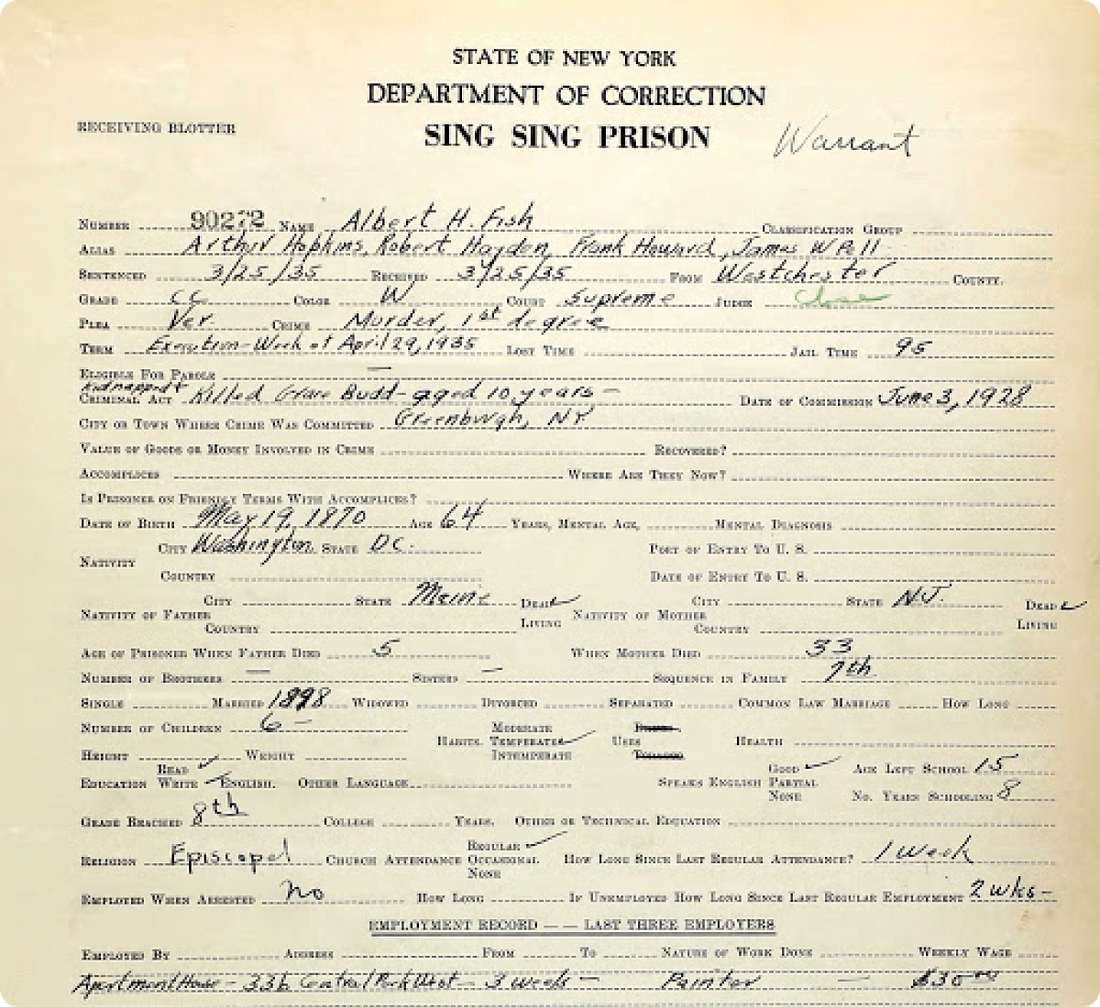 STATE OF NEW YORK
DEPARTMENT OF CORRECTION
RECEIVING BLOTTER
SING SING PRISON
Warrant
NUMBER 90272 NAME Albert H. Fish CLASSIFICATION GROUP
ALIAS Arthur Hopkins, Robert Hayden, Frank Howard, James W Pell
SENTENCED 3/25/35 RECEIVED 3/25/35 FROM Westchester COUNTY.
GRADE CC. COLOR W COURT Supreme JUDGE Close
PLEA Ver. CRIME Murder, 1st degree
TERM Execution-Week of April 29, 1935 LOST TIME JAIL TIME 95
ELIGIBLE FOR PAROLE —
Kidnapped +
CRIMINAL ACT Killed Grace Budd-aged 10 years - DATE OF COMMISSION June 3, 1928
CITY OR TOWN WHERE CRIME WAS COMMITTED Greenburgh, NY
VALUE OF GOODS OR MONEY INVOLVED IN CRIME RECOVERED?
ACCOMPLICES WHERE ARE THEY NOW?
IS PRISONER ON FRIENDLY TERMS WITH ACCOMPLICES?
DATE OF BIRTH May 19, 1870 AGE 64 YEARS, MENTAL AGE, MENTAL DIAGNOSIS
CITY Washington, STATE D.C. PORT OF ENTRY TO U. S.
NATIVITY
COUNTRY DATE OF ENTRY TO U. S.
CITY STATE Maine DEAD ✓ CITY STATE N.J. DEAD ✓
NATIVITY OF FATHER NATIVITY OF MOTHER
COUNTRY LIVING COUNTRY LIVING
AGE OF PRISONER WHEN FATHER DIED 5 WHEN MOTHER DIED 33
NUMBER OF BROTHERS — SISTERS — SEQUENCE IN FAMILY 7th
SINGLE MARRIED 1898 WIDOWED DIVORCED SEPARATED COMMON LAW MARRIAGE HOW LONG
NUMBER OF CHILDREN 6 - MODERATE
HABITS TEMPERATE ✓ USES HEALTH
HEIGHT WEIGHT INTEMPERATE TOBACCO
READ ✓ GOOD ✓ AGE LEFT SCHOOL 15
EDUCATION WRITE ✓ ENGLISH. OTHER LANGUAGE SPEAKS ENGLISH PARTIAL
NONE NO. YEARS SCHOOLING 8
GRADE REACHED 8th COLLEGE YEARS. OTHER OR TECHNICAL EDUCATION
REGULAR ✓
RELIGION Episcopal CHURCH ATTENDANCE OCCASIONAL HOW LONG SINCE LAST REGULAR ATTENDANCE? 1 week
NONE
EMPLOYED WHEN ARRESTED No HOW LONG IF UNEMPLOYED HOW LONG SINCE LAST REGULAR EMPLOYMENT 2 wks-
EMPLOYMENT RECORD — — LAST THREE EMPLOYERS
EMPLOYED BY ADDRESS FROM TO NATURE OF WORK DONE WEEKLY WAGE
Apartment House - 336 Central Park West - 3 weeks - Painter - $30.00